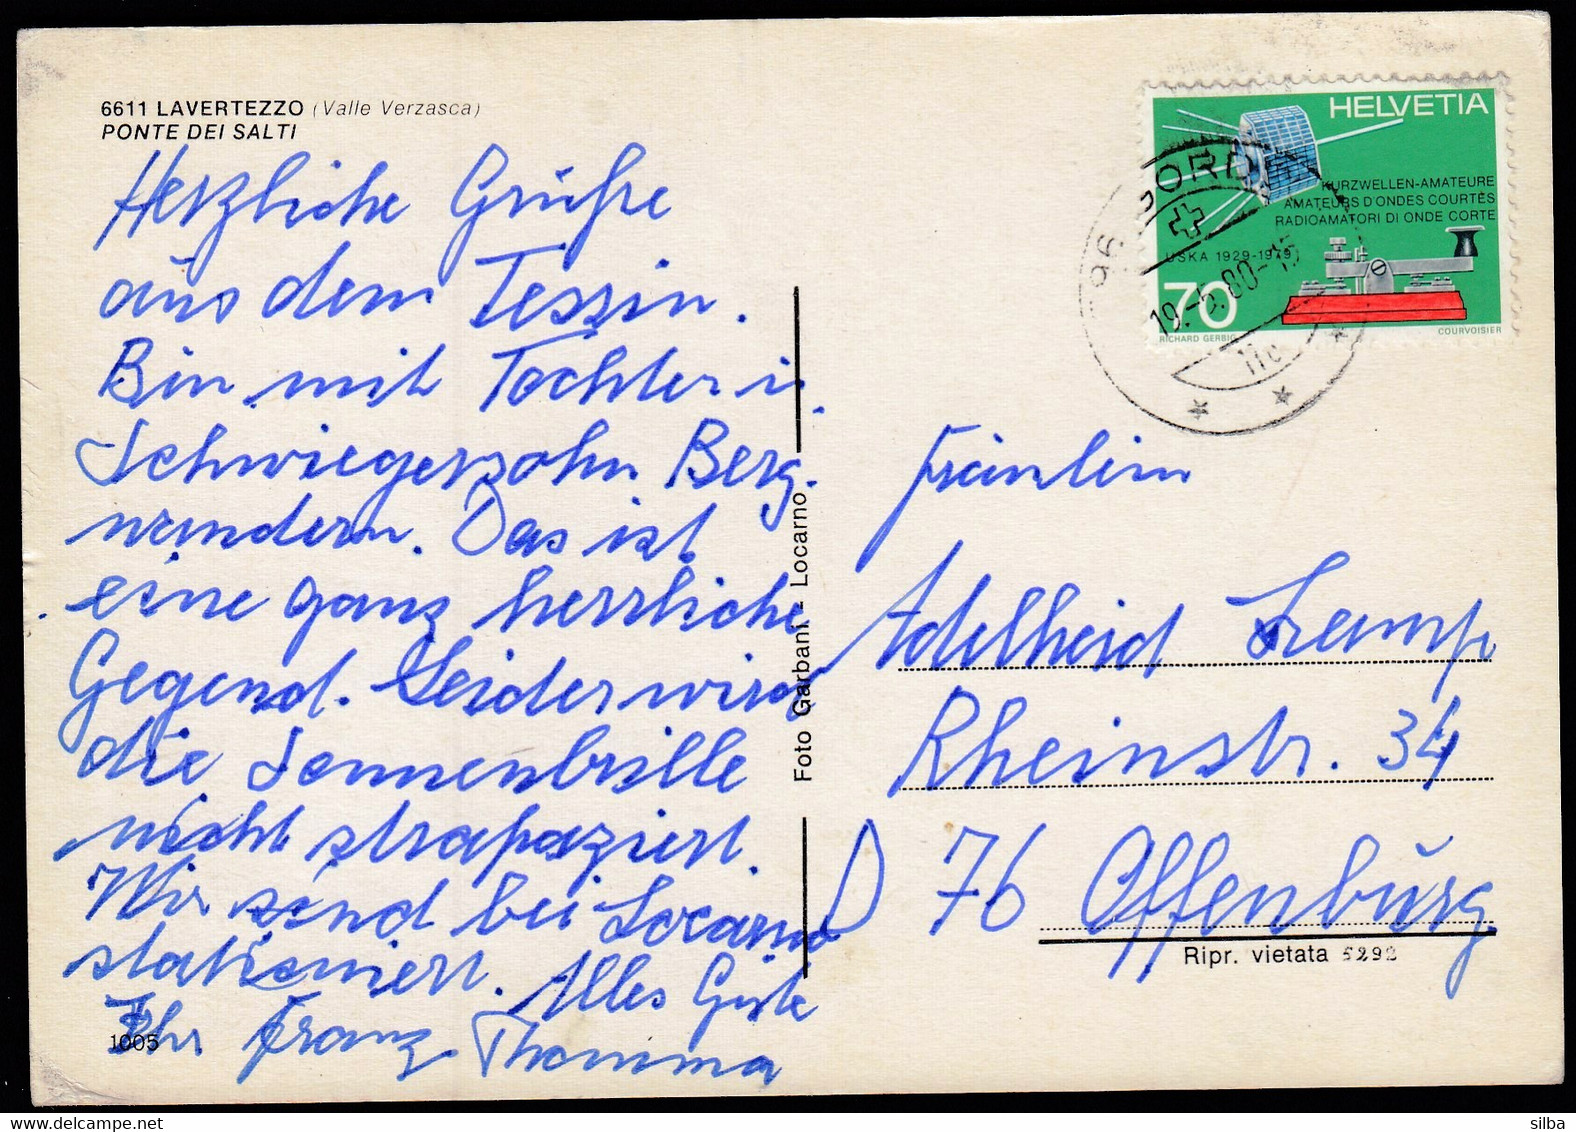 6611 LAVERTEZZO (Valle Verzasca)
PONTE DEI SALTI
Herzliche Grüße
aus dem Tessin.
Bin mit Tochter u.
Schwiegersohn Berg-
wandern. Das ist
eine ganz herrliche
Gegend. Leider wird
die Sonnenbrille
nicht strapaziert.
Wir sind bei Locarno
stationiert. Alles Gute
Ihr Franz Thomma
1005
Foto Garbani - Locarno
HELVETIA
KURZWELLEN-AMATEURE
AMATEURS D'ONDES COURTES
RADIOAMATORI DI ONDE CORTE
USKA 1929-1979
70
RICHARD GERBIG
COURVOISIER
19.-5.80-15
Fräulein
Adelheid Lamp
Rheinstr. 34
D 76 Offenburg
Ripr. vietata 5292
silba